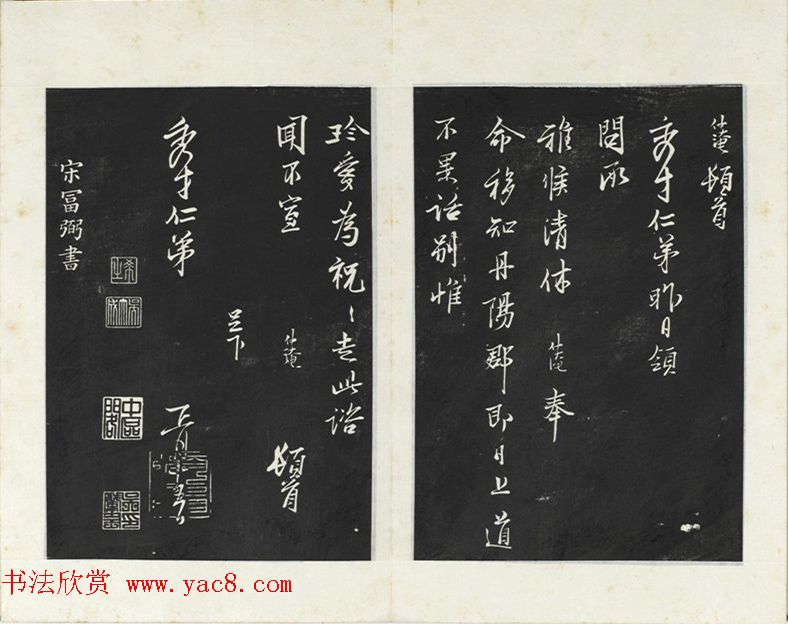 仲淹頓首
秀才仁弟昨日領
問承
雅候清休仲淹奉
命移知丹陽郡即日上道
不果話別惟
珍愛為祝〻走此諮
聞不宣 仲淹 頓首
足下
秀才仁弟
宋富弼書
书法欣赏 www.yac8.com